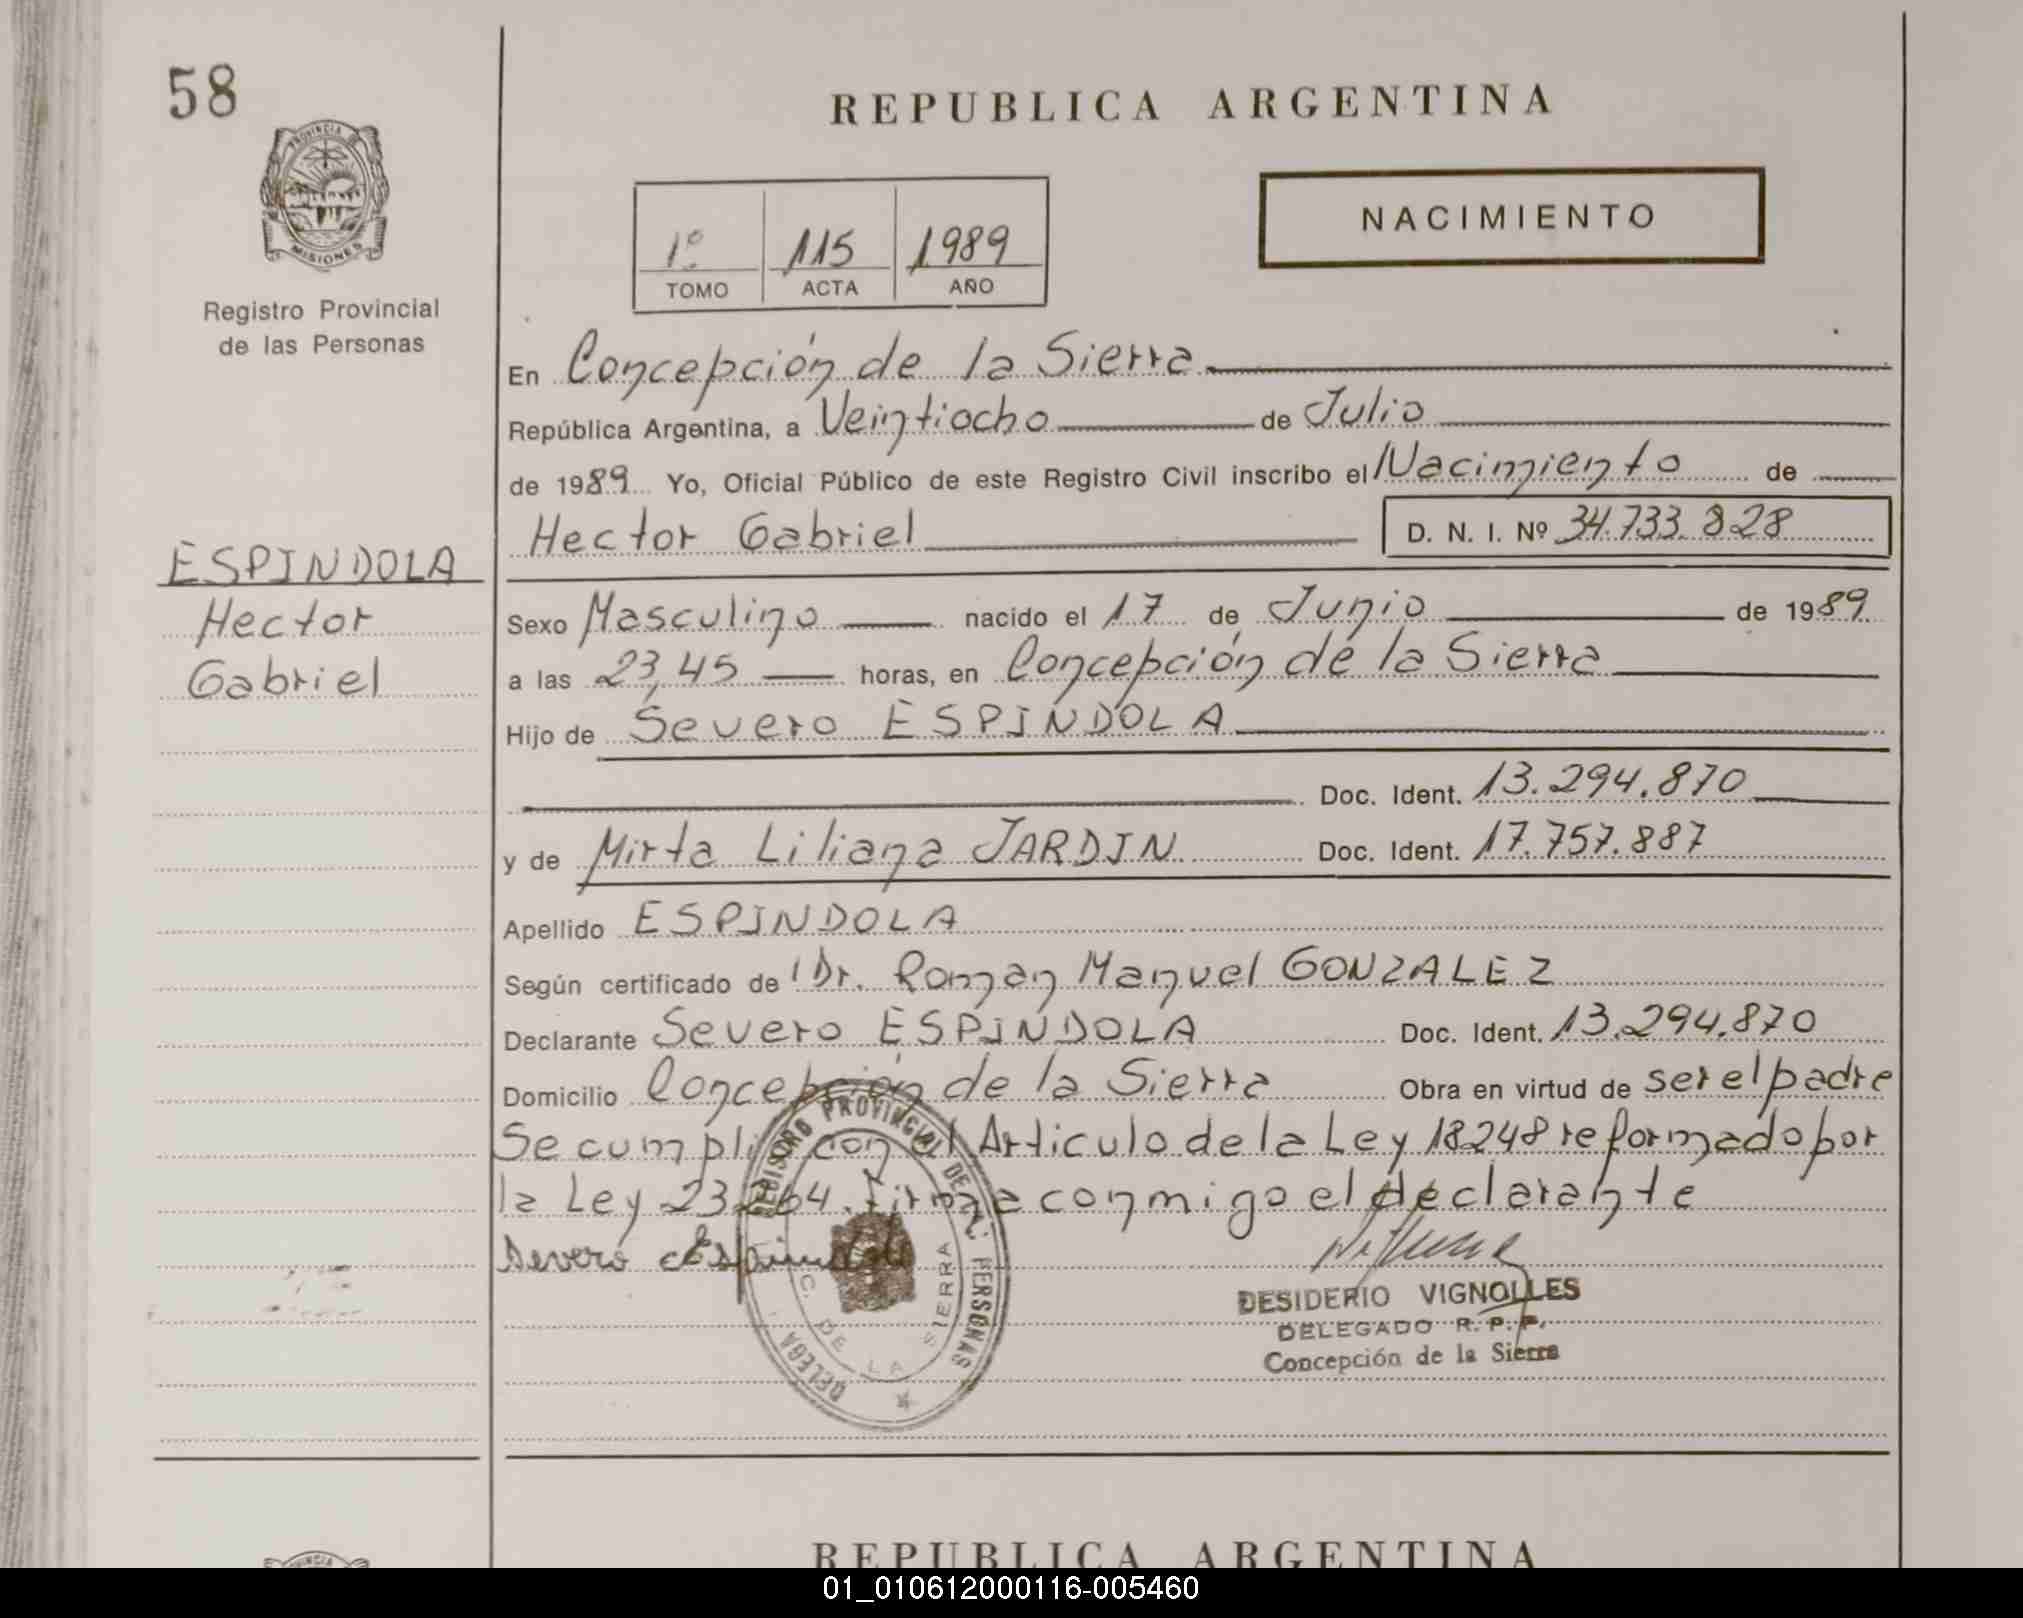 58
REPUBLICA ARGENTINA
PROVINCIA DE
MISIONES
Registro Provincial
de las Personas
1º 115 1989
TOMO ACTA AÑO
NACIMIENTO
En Concepción de la Sierra
República Argentina, a Veintiocho de Julio
de 1989 Yo, Oficial Público de este Registro Civil inscribo el Nacimiento de
Hector Gabriel D. N. I. Nº 34.733.828
ESPINDOLA
Hector
Gabriel
Sexo Masculino nacido el 17 de Junio de 1989
a las 23,45 horas, en Concepción de la Sierra
Hijo de Severo ESPINDOLA
Doc. Ident. 13.294.870
y de Mirta Liliana JARDIN Doc. Ident. 17.757.887
Apellido ESPINDOLA
Según certificado de Dr. Roman Manuel GONZALEZ
Declarante Severo ESPINDOLA Doc. Ident. 13.294.870
Domicilio Concepción de la Sierra Obra en virtud de ser el padre
Se cumplió con el Articulo de la Ley 18248 reformado por
la Ley 23264. Firma conmigo el declarante
Severo Espindola
REGISTRO PROVINCIAL DE LAS PERSONAS
C. DE LA SIERRA
DELEGA
DESIDERIO VIGNOLLES
DELEGADO R. P. P.
Concepción de la Sierra
REPUBLICA ARGENTINA
01_010612000116-005460